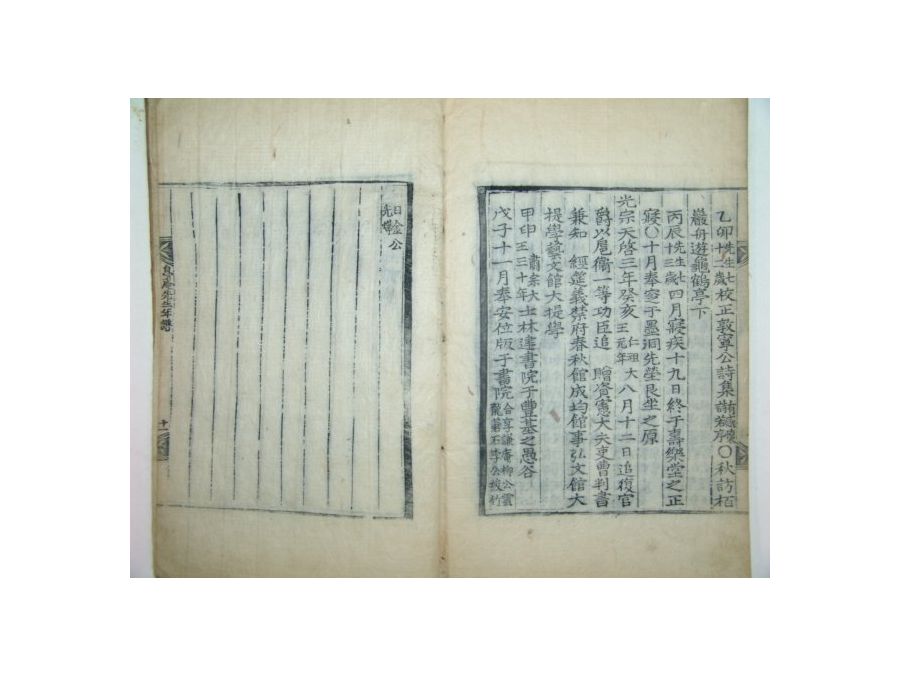 乙卯先生七十二歲校正敦寧公詩集請蒼序〇秋訪栢
巖舟遊龜鶴亭下
丙辰先生七十三歲四月寢疾十九日終于壽樂堂之正
寢〇十月奉窆于墨洞先塋艮坐之原
光宗天啓三年癸亥仁祖大王元年八月十二日追復官
爵以扈衛一等功臣追 贈資憲大夫吏曹判書
兼知 經筵義禁府春秋館成均館事弘文館大
提學藝文館大提學
甲申肅宗大王三十年士林建書院于豐基之愚谷
戊子十一月奉安位版于書院合享謙庵柳公雲龍蒼石李公埈竹
日金公光
先生年譜
十一